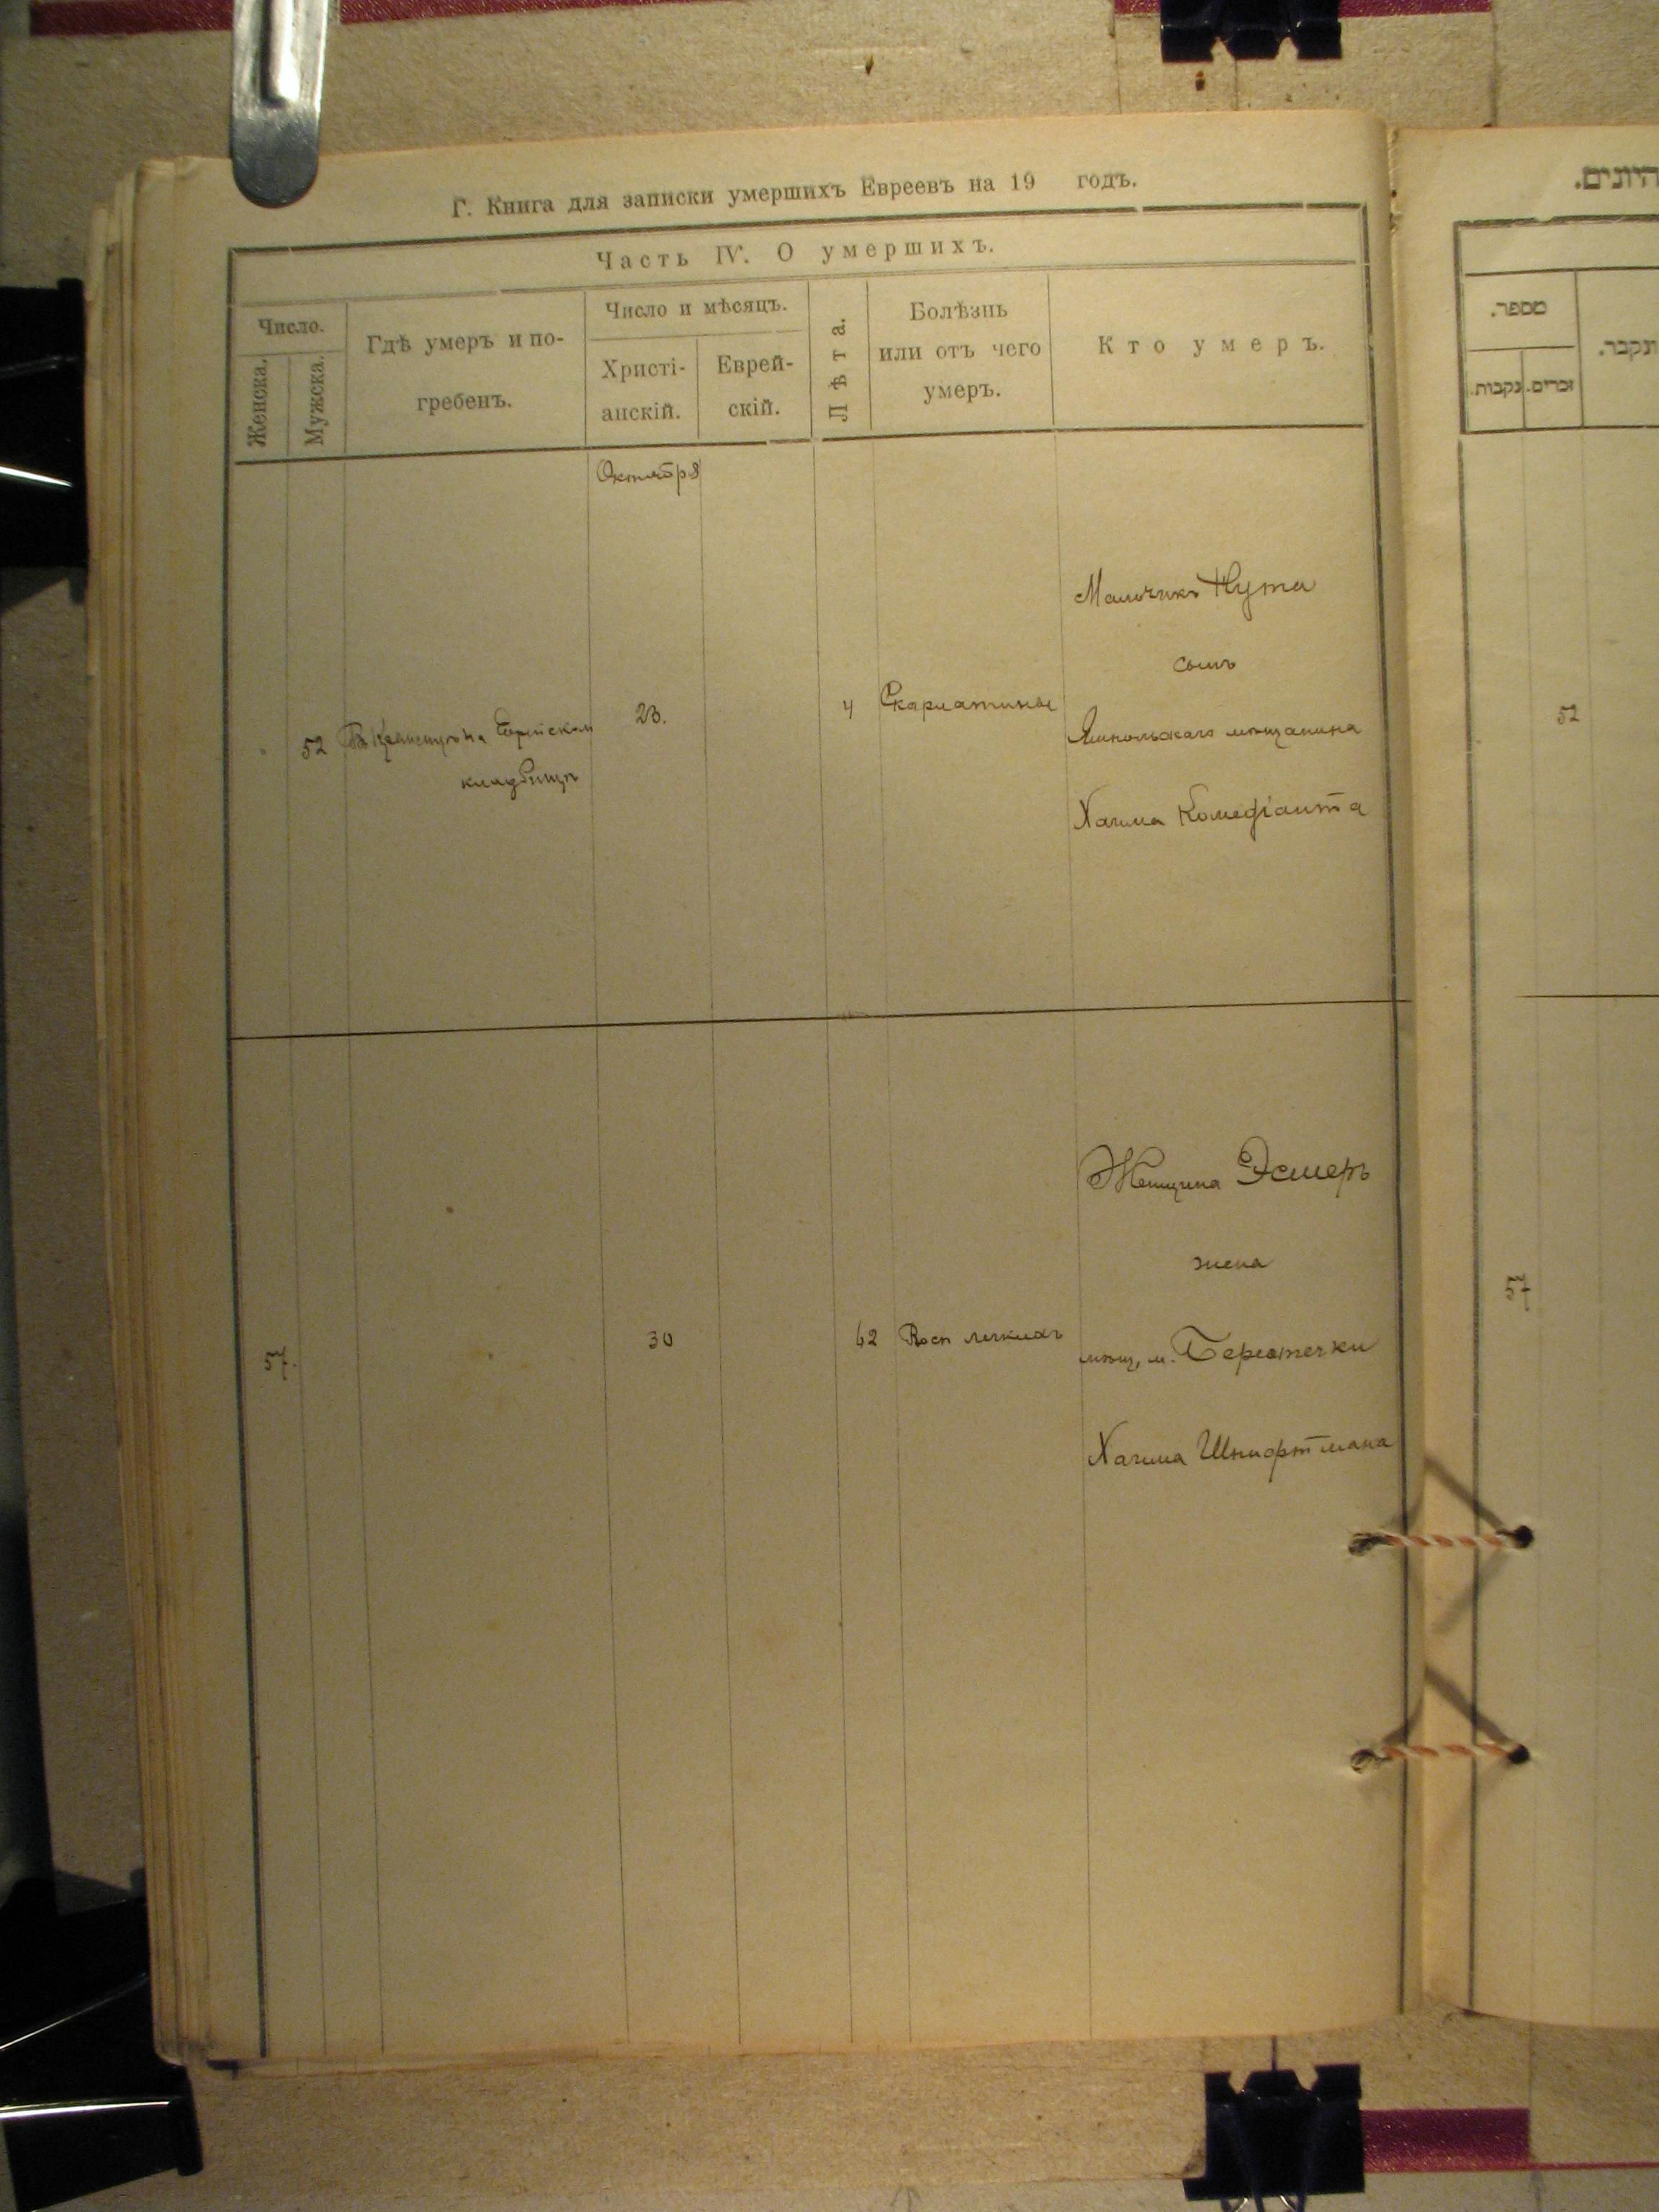 Г. Книга для записки умершихъ Евреевъ на 19 годъ.
Часть IV. О умершихъ.
Число.
Женска.
Мужска.
Гдѣ умеръ и по-
гребенъ.
Число и мѣсяцъ.
Христі-
анскій.
Еврей-
скій.
Лѣта.
Болѣзнь
или отъ чего
умеръ.
Кто умеръ.
Октября
52
на Еврейском
кладбищѣ
23.
4
Скарлатины
Мальчикъ Нута
сынъ
Ямпольскаго мѣщанина
Хаима Комедіанта
57.
30
62
Восп легкихъ
Женщина Эстеръ
жена
мѣщ. м. Берестечки
Хаима Шнифтмана
היונים.
מספר.
נקבות.
זכרים.
ונקבר.
52
57